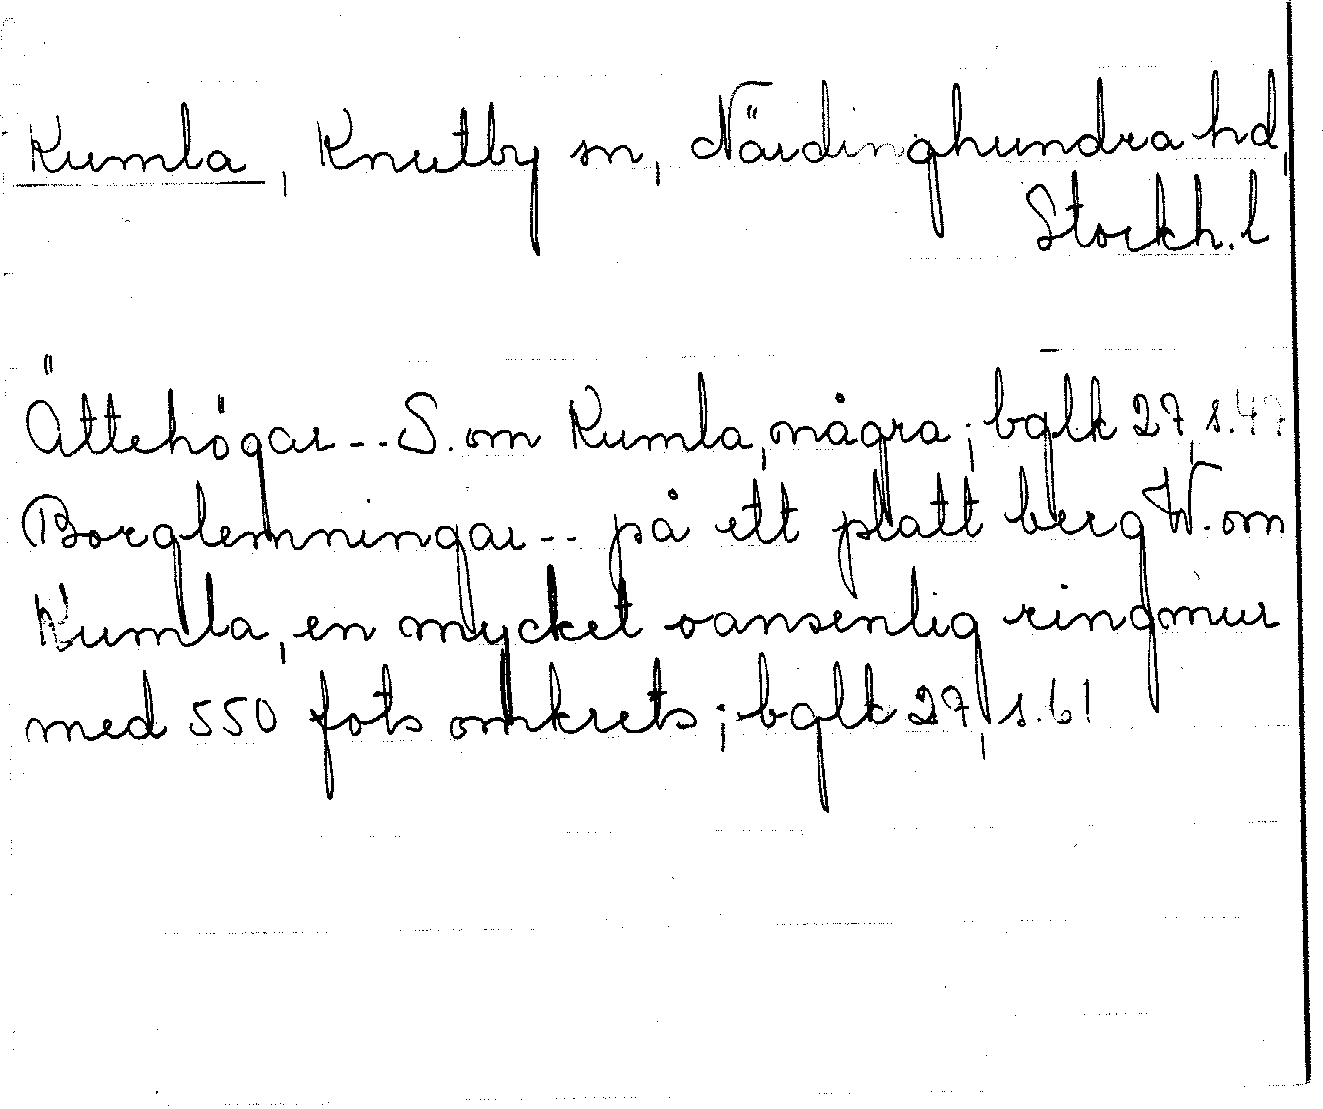 Kumla, Knutby sn, Närdinghundra hd,
Stockh. l
Ättehögar -- S. om Kumla, några; bglk 27, s. 47
Borglemningar -- på ett platt berg W. om
Kumla, en mycket oansenlig ringmur
med 550 fots omkrets; bglk 27, s. 61